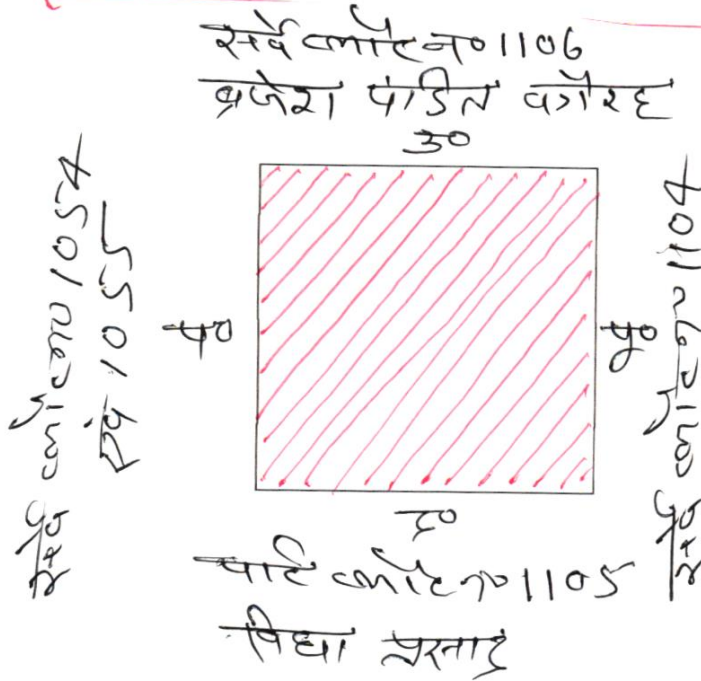 सर्वे प्लौट न० 1106
ब्रजेश पंडित वगैरह
उ०
सर्वे प्लौट न० 1054
एवं 1055
प०
पू०
सर्वे प्लौट न० 1104
द०
पार्ट प्लौट न० 1105
विधा प्रसाद